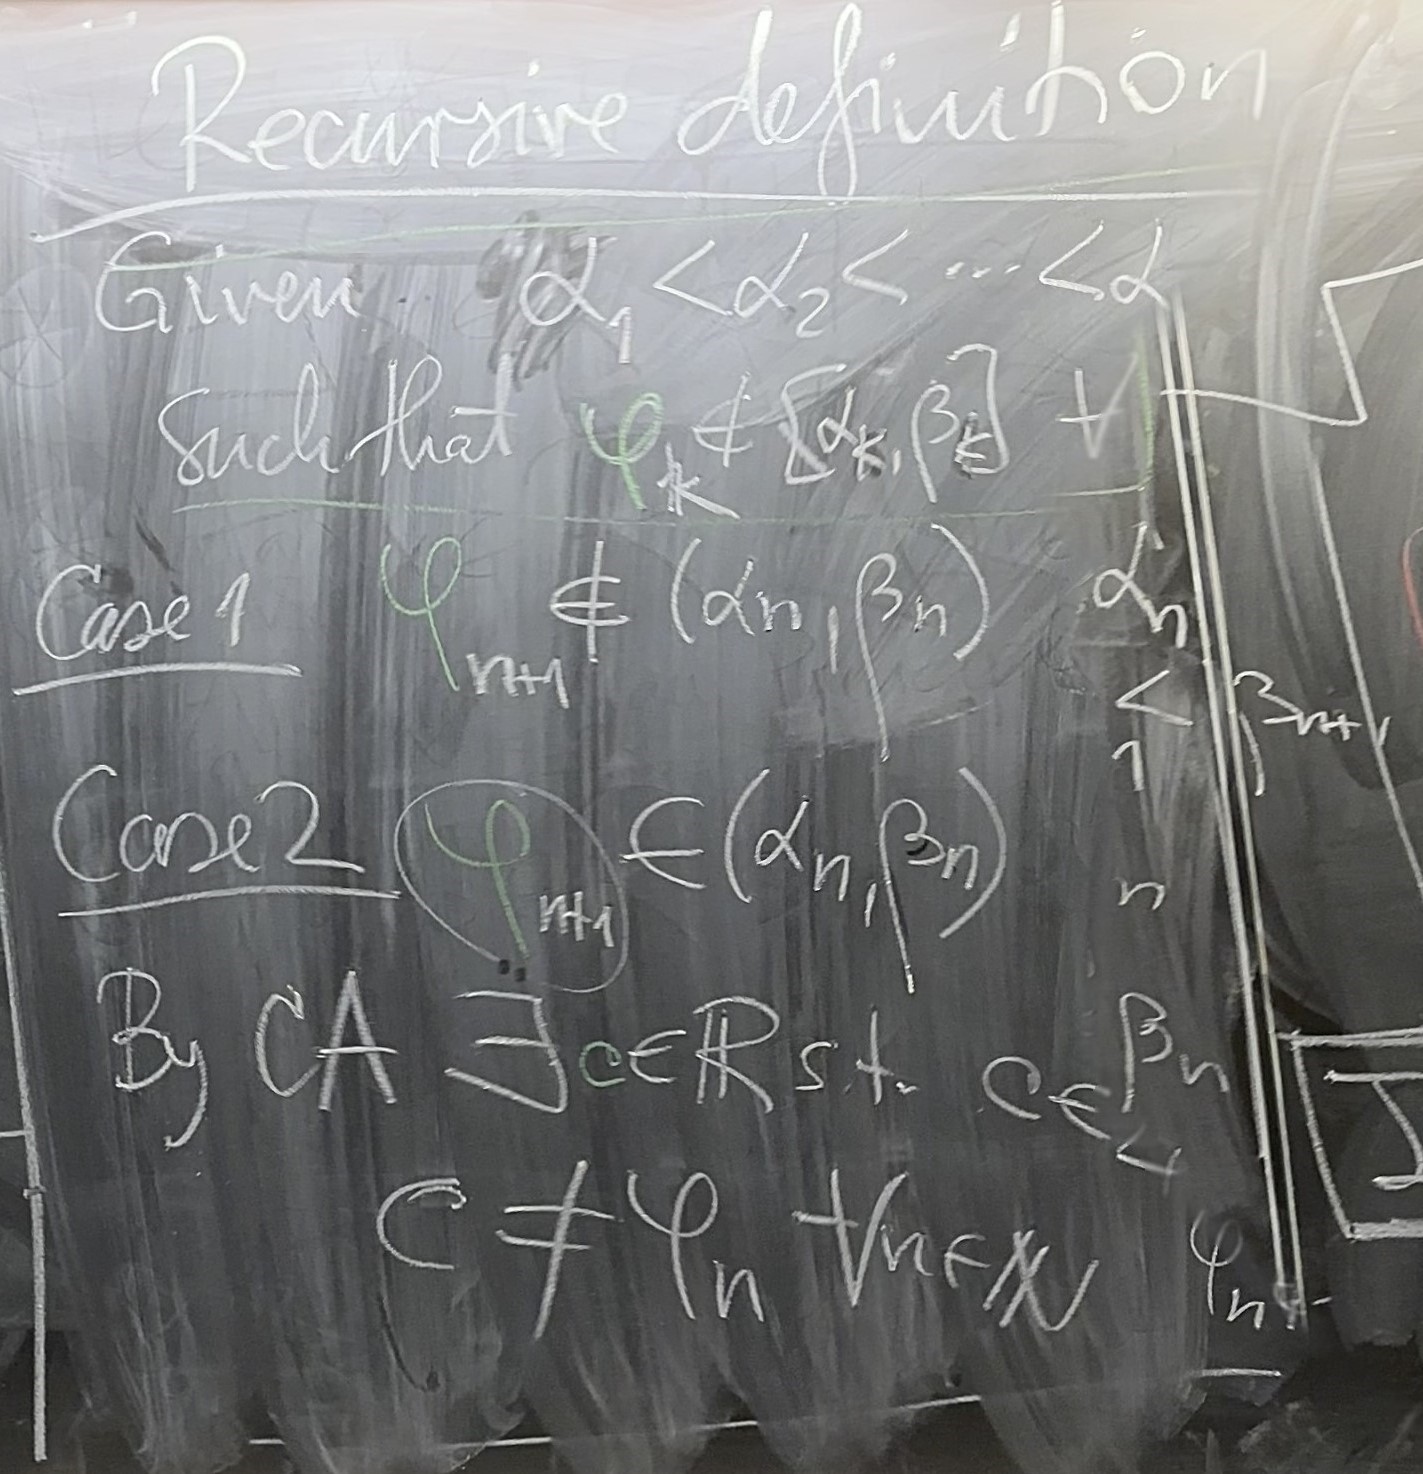 Recursive definition
Given α₁ < α₂ < ... < α
such that φₖ ∉ [αₖ, βₖ] ∀
Case 1 φₙ₊₁ ∉ (αₙ, βₙ) αₙ
< βₙ₊₁
Case 2 φₙ₊₁ ∈ (αₙ, βₙ) n
By CA ∃ c ∈ ℝ s.t. c ∈ βₙ
c ≠ φₙ ∀n∈ℕ φₙ